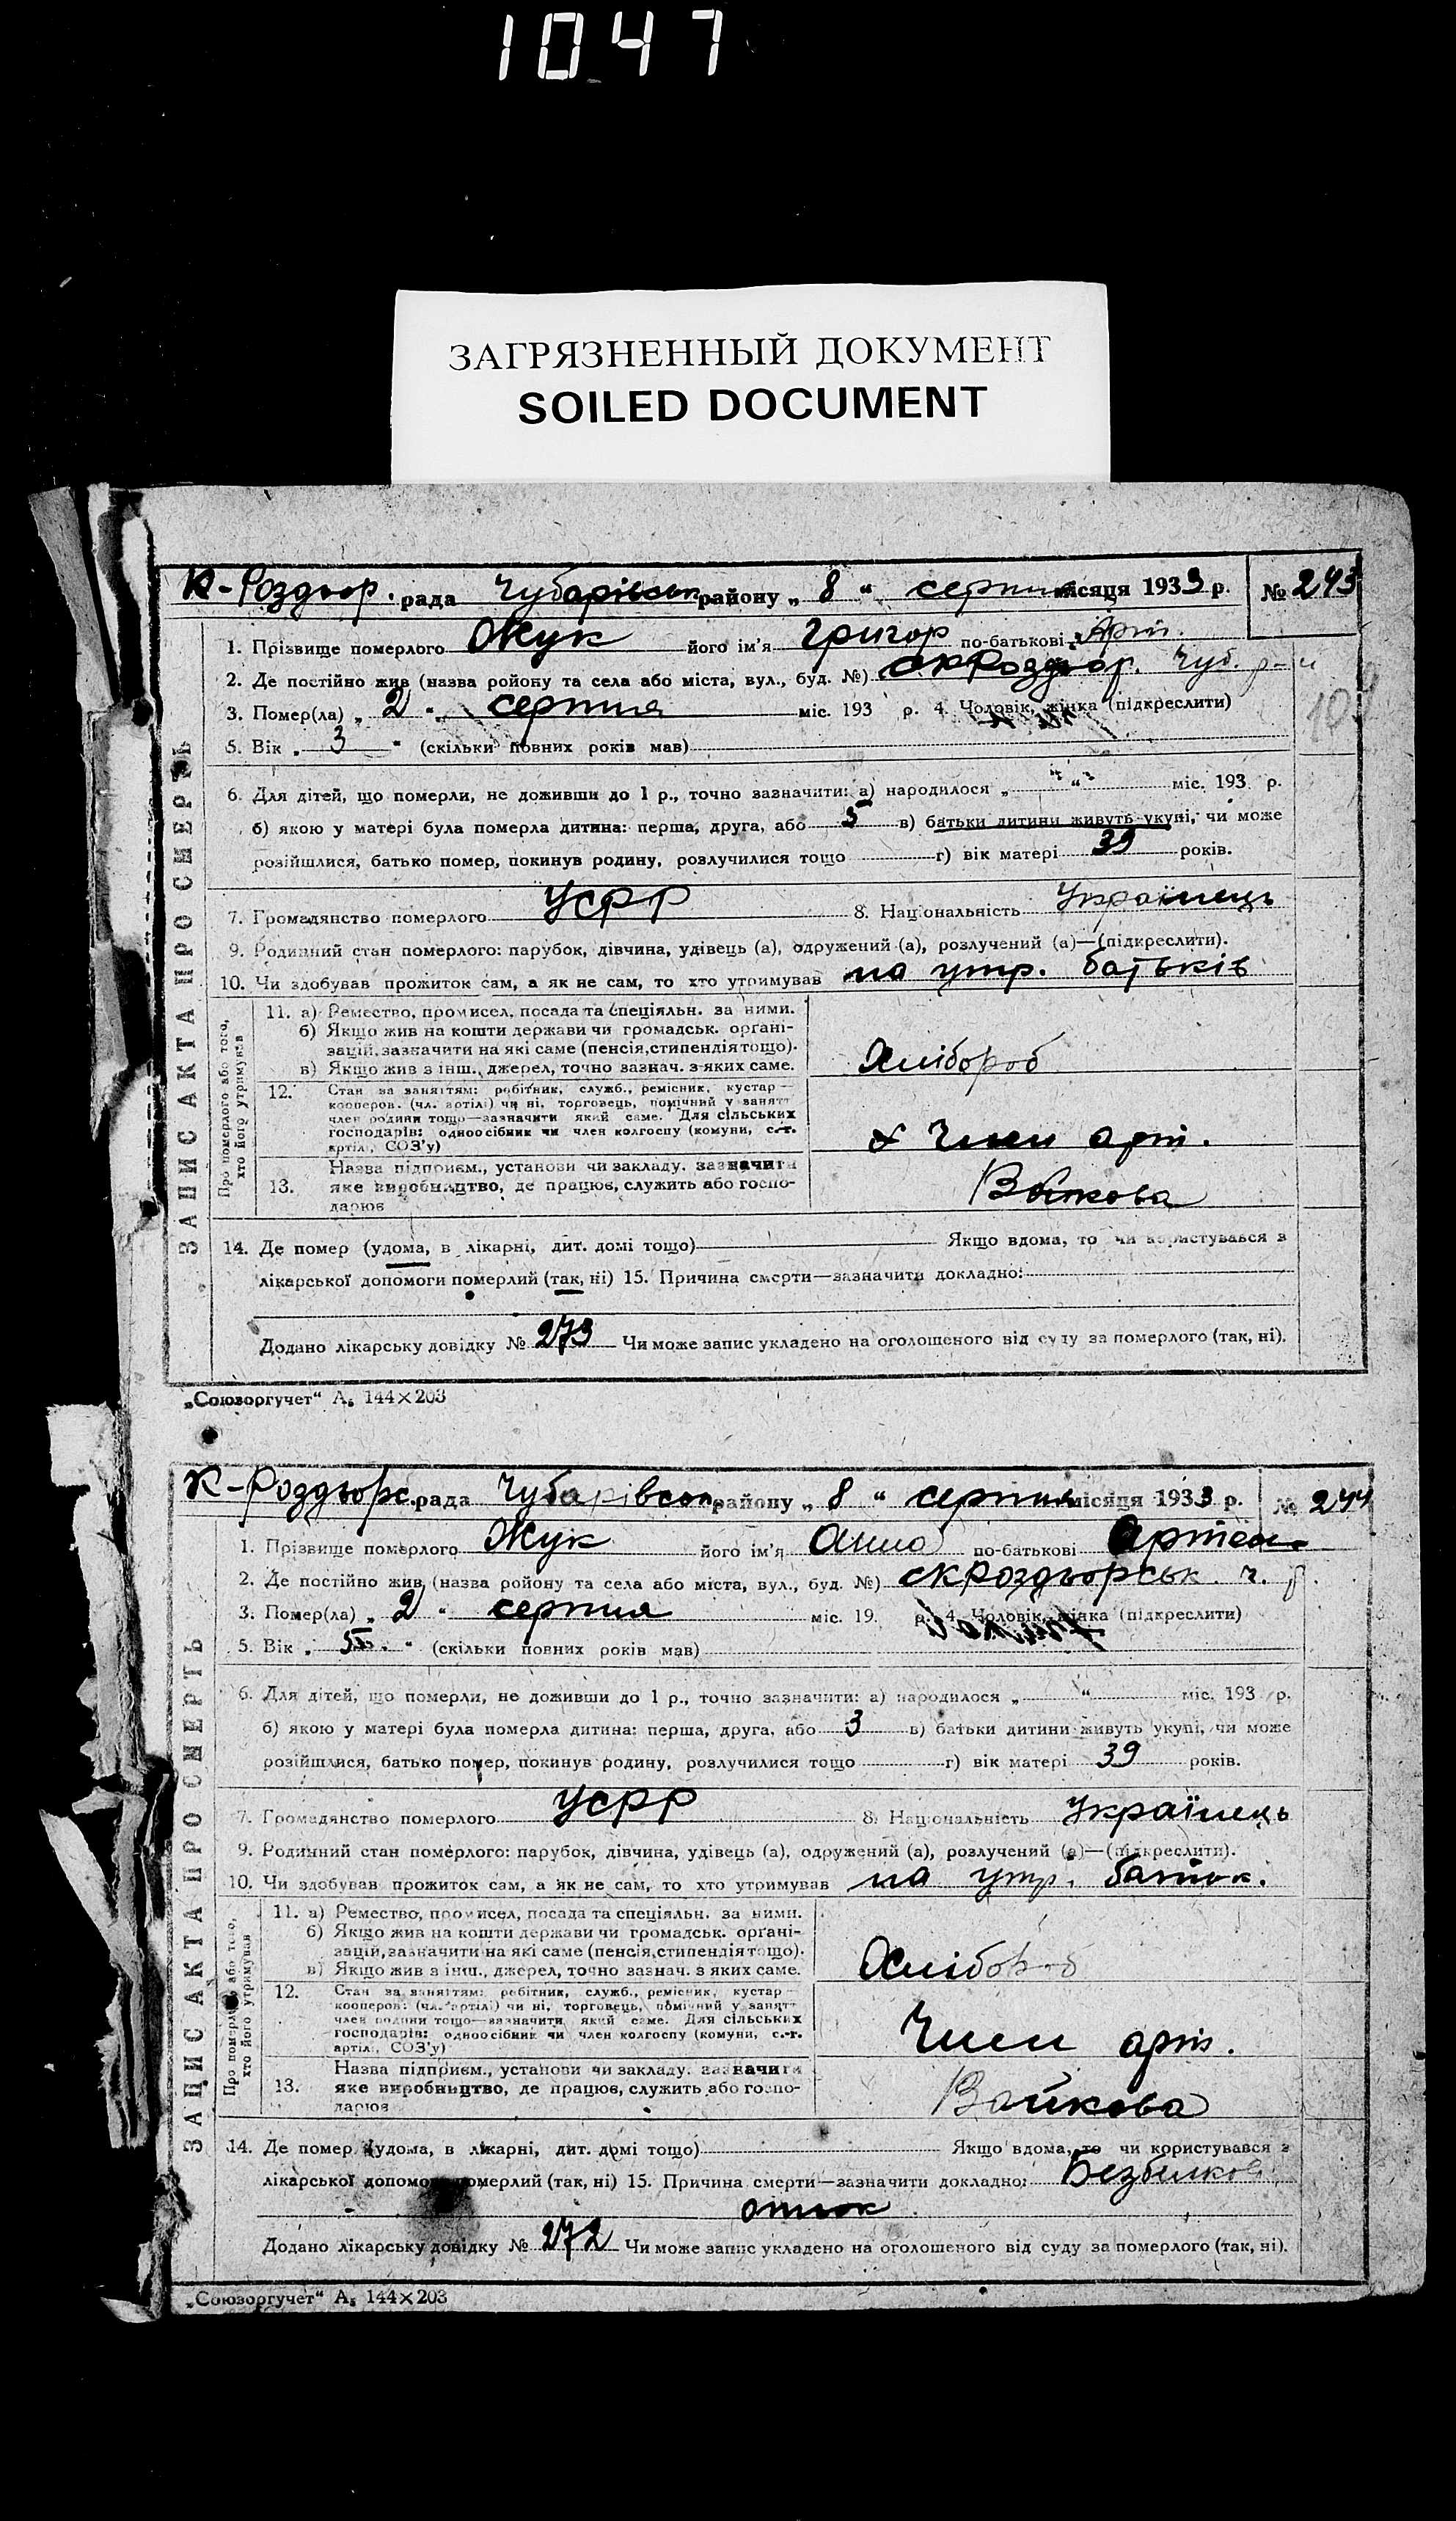 1047
ЗАГРЯЗНЕННЫЙ ДОКУМЕНТ
SOILED DOCUMENT
К-Роздор. рада Чубарівськ району „ 8 “ серпня місяця 1933 р. № 243
ЗАПИС АКТА ПРО СМЕРТЬ
1. Прізвище померлого Жук його ім'я Григор по-батькові Арт.
2. Де постійно жив (назва району та села або міста, вул., буд. №) Чуб. р-н
3. Помер(ла) „ 2 “ серпня міс. 193 р. 4. Чоловік, жінка (підкреслити)
5. Вік „ 3 “ (скільки повних років мав)
6. Для дітей, що померли, не доживши до 1 р., точно зазначити: а) народилося „ “ міс. 193 р.
б) якою у матері була померла дитина: перша, друга, або 5 в) батьки дитини живуть укупі, чи може
розійшлися, батько помер, покинув родину, розлучилися тощо г) вік матері 39 років.
7. Громадянство померлого УСРР 8. Національність Українець
9. Родинний стан померлого: парубок, дівчина, удівець (а), одружений (а), розлучений (а)—(підкреслити).
10. Чи здобував прожиток сам, а як не сам, то хто утримував на утр. батьків
Про померлого або того, хто його утримував
11. а) Ремество, промисел, посада та спеціяльн. за ними.
б) Якщо жив на кошти держави чи громадськ. органі-
зацій, зазначити на які саме (пенсія, стипендія тощо).
в) Якщо жив з інш., джерел, точно зазнач. з яких саме.
Хлібороб
12. Стан за заняттям: робітник, служб., ремісник, кустар—
кооперов. (чл. артілі) чи ні, торговець, помічний у занятт
член родини тощо—зазначити який саме. Для сільських
господарів: одноосібник чи член колгоспу (комуни, с.-г.
артілі, СОЗ'у)
Член арт.
13. Назва підприєм., установи чи закладу. зазначити
яке виробництво, де працює, служить або госпо-
дарює
Войкова
14. Де помер (удома, в лікарні, дит. домі тощо) Якщо вдома, то чи користувався з
лікарської допомоги померлий (так, ні) 15. Причина смерти—зазначити докладно:
Додано лікарську довідку № 273 Чи може запис укладено на оголошеного від суду за померлого (так, ні).
„Союзоргучет“ А₅ 144×203
К-Роздорс. рада Чубарівськ району „ 8 “ серпня місяця 1933 р. № 244
ЗАПИС АКТА ПРО СМЕРТЬ
1. Прізвище померлого Жук його ім'я Анна по-батькові Артем.
2. Де постійно жив (назва району та села або міста, вул., буд. №) ч. р.
3. Помер(ла) „ 2 “ серпня міс. 19 р. 4. Чоловік, жінка (підкреслити)
5. Вік „ “ (скільки повних років мав)
6. Для дітей, що померли, не доживши до 1 р., точно зазначити: а) народилося „ “ міс. 193 р.
б) якою у матері була померла дитина: перша, друга, або 3 в) батьки дитини живуть укупі, чи може
розійшлися, батько помер, покинув родину, розлучилися тощо г) вік матері 39 років.
7. Громадянство померлого УСРР 8. Національність Українець
9. Родинний стан померлого: парубок, дівчина, удівець (а), одружений (а), розлучений (а)—(підкреслити).
10. Чи здобував прожиток сам, а як не сам, то хто утримував на утр. батьк.
Про померлого або того, хто його утримував
11. а) Ремество, промисел, посада та спеціяльн. за ними.
б) Якщо жив на кошти держави чи громадськ. органі-
зацій, зазначити на які саме (пенсія, стипендія тощо).
в) Якщо жив з інш., джерел, точно зазнач. з яких саме.
Хлібороб
12. Стан за заняттям: робітник, служб., ремісник, кустар—
кооперов. (чл. артілі) чи ні, торговець, помічний у занятт
член родини тощо—зазначити який саме. Для сільських
господарів: одноосібник чи член колгоспу (комуни, с.-г.
артілі, СОЗ'у)
Член арт.
13. Назва підприєм., установи чи закладу. зазначити
яке виробництво, де працює, служить або госпо-
дарює
Войкова
14. Де помер (удома, в лікарні, дит. домі тощо) Якщо вдома, то чи користувався з
лікарської допомоги померлий (так, ні) 15. Причина смерти—зазначити докладно: Безбілков
отьок
Додано лікарську довідку № 272 Чи може запис укладено на оголошеного від суду за померлого (так, ні).
„Союзоргучет“ А₅ 144×203